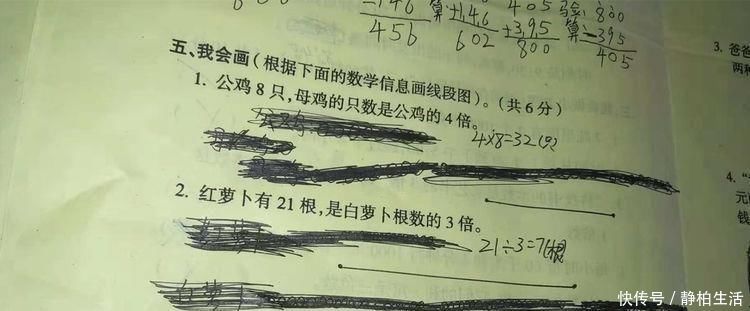 -146 算 +146 405 验 800
456 602 +395 算 -395
800 405
五、我会画(根据下面的数学信息画线段图)。(共6分)
1. 公鸡8只,母鸡的只数是公鸡的4倍。
4×8=32(只)
2. 红萝卜有21根,是白萝卜根数的3倍。
21÷3=7(根)
白萝卜
3. 爸爸
两种
4.
元
钱
快传号/静柏生活